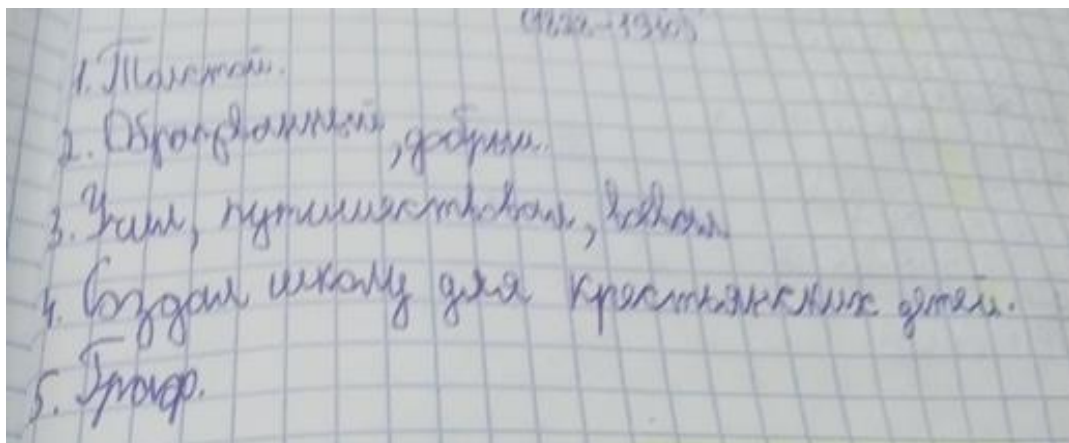 (1828-1910)
1. Толстой.
2. Образованный, добрый.
3. Учил, путишествовал, воевал.
4. Создал школу для крестьянских детей.
5. Граф.